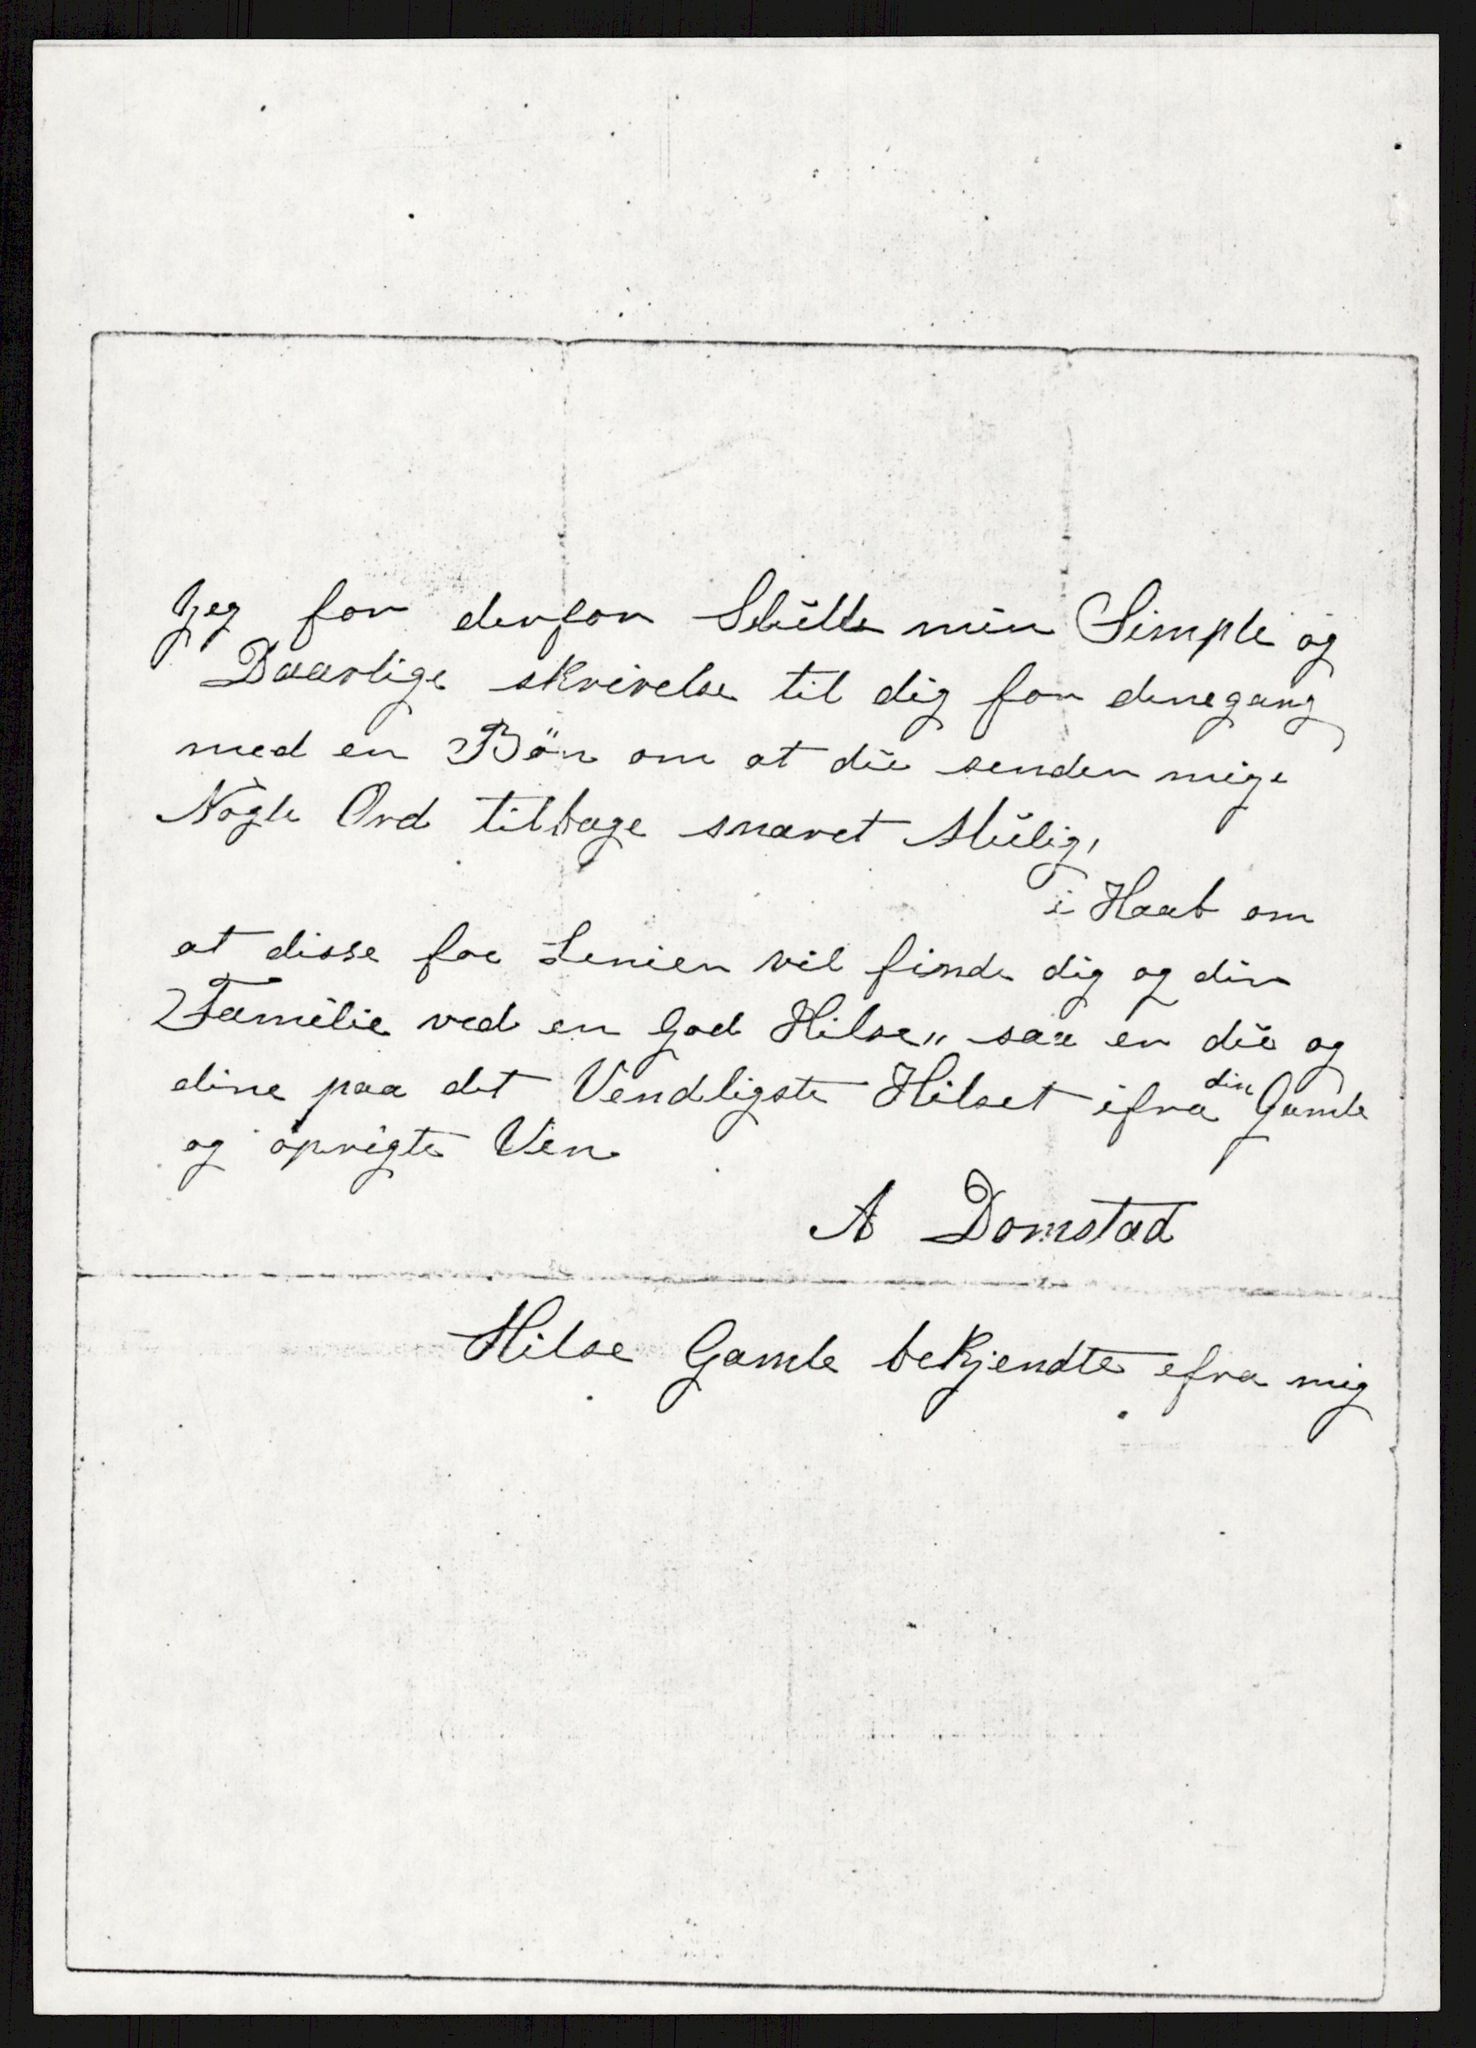 Jeg for derfor Slütte min Simple og
Daarlige skrivelse til dig for denegang
med en Bön om at dü sender mige
Nogle Ord tilbage snaret Mülig,
i Haab om
at disse faa Linien vil finde dig og din
Familie ved en God Hilse„ saa er dü og
dine paa det Vendligste Hilset ifra din Gamle
og oprigte Ven
A Domstad
Hilse Gamle bekjendte efra mig